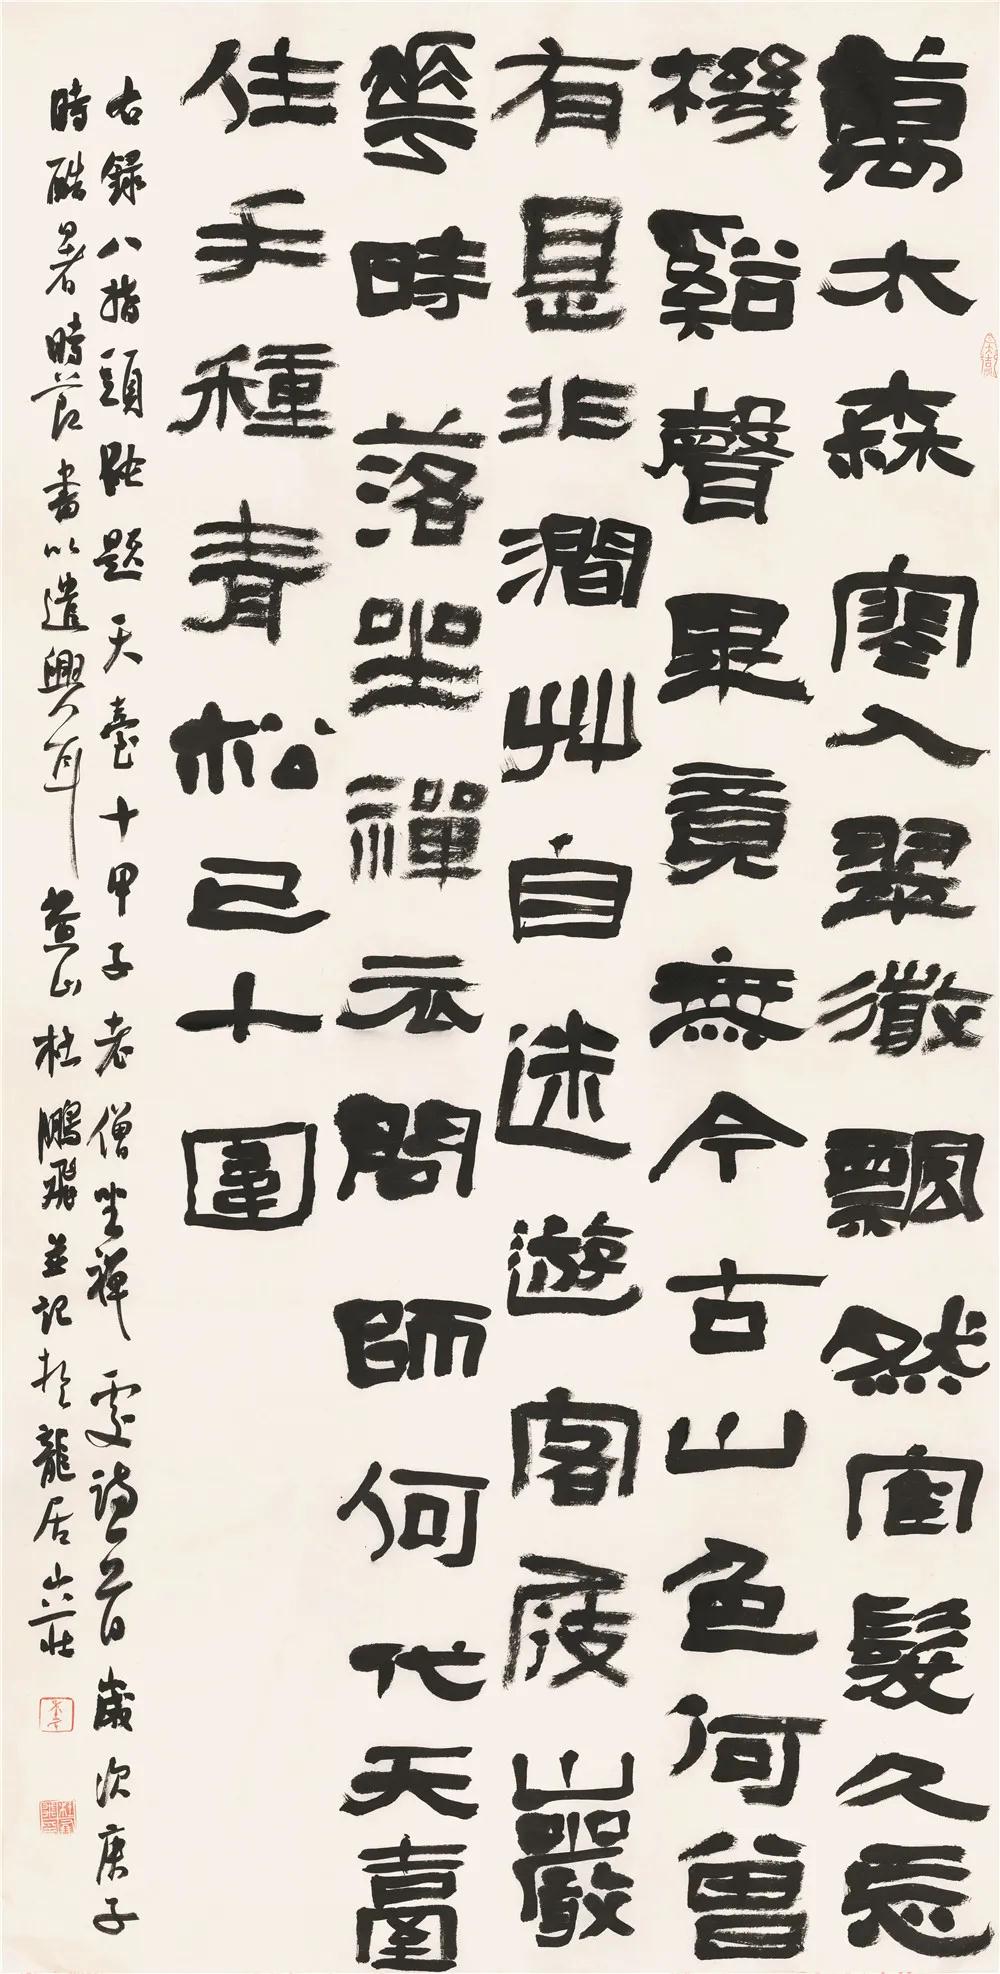 萬木森寒入翠微飄然雪髮久忘
機谿聲畢竟無今古山色何曾
有是非澗艸自迷遊客屐巖
華時落坐禪衣問師何代天臺
住手種青松已十圍
右錄八指頭陀題天臺十甲子老僧坐禪處詩一首歲次庚子
時酷暑時節書以遣興耳 山杜鵬飛並記於龍居山莊